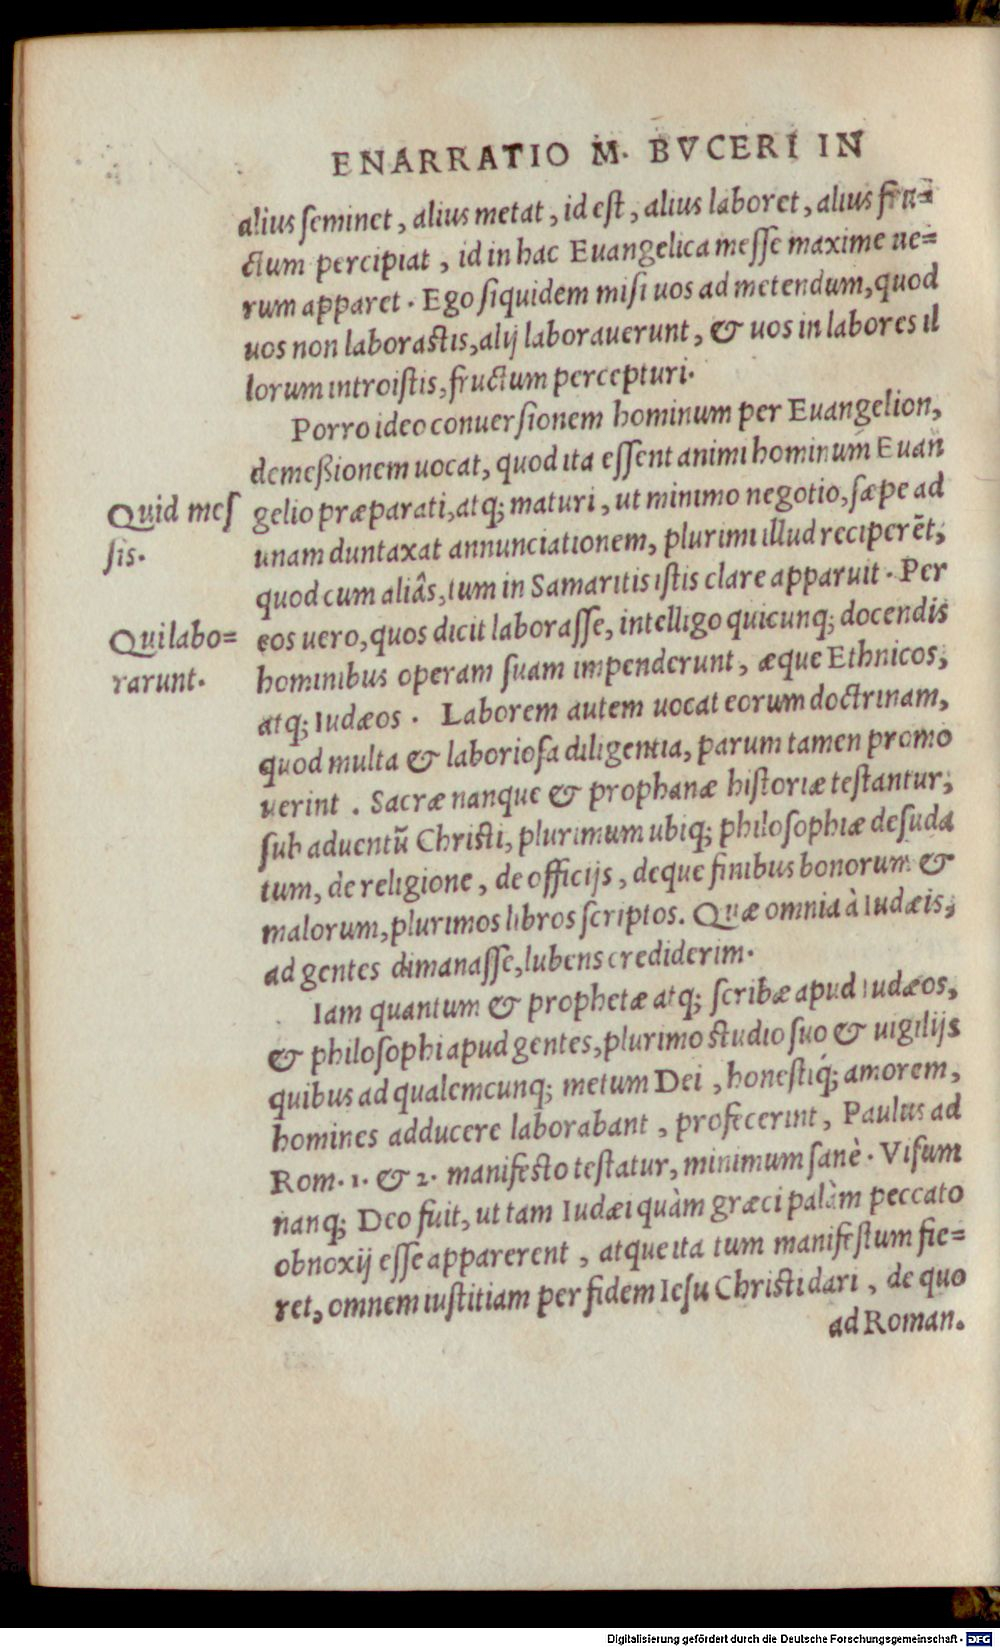 ENARRATIO M. BVCERI IN
alius ſeminet, alius metat, id eſt, alius laboret, alius fru=
ctum percipiat, id in hac Euangelica meſſe maxime ue=
rum apparet. Ego ſiquidem miſi uos ad metendum, quod
uos non laboraſtis, alij laborauerunt, & uos in labores il
lorum introiſtis, fructum percepturi.
Porro ideo conuerſionem hominum per Euangelion,
demeßionem uocat, quod ita eſſent animi hominum Euan
Quid meſ
ſis.
gelio præparati, atq; maturi, ut minimo negotio, ſæpe ad
unam duntaxat annunciationem, plurimi illud reciperẽt,
quod cum aliâs, tum in Samaritis iſtis clare apparuit. Per
Qui labo=
rarunt.
eos uero, quos dicit laboraſſe, intelligo quicunq; docendis
hominibus operam ſuam impenderunt, æque Ethnicos,
atq; Iudæos. Laborem autem uocat eorum doctrinam,
quod multa & laborioſa diligentia, parum tamen promo
uerint. Sacræ nanque & prophanæ hiſtoriæ teſtantur,
ſub aduentũ Chriſti, plurimum ubiq; philoſophiæ deſuda
tum, de religione, de officijs, deque finibus bonorum &
malorum, plurimos libros ſcriptos. Quæ omnia à Iudæis,
ad gentes dimanaſſe, lubens crediderim.
Iam quantum & prophetæ atq; ſcribæ apud Iudæos,
& philoſophi apud gentes, plurimo ſtudio ſuo & uigilijs
quibus ad qualemcunq; metum Dei, honeſtiq́; amorem,
homines adducere laborabant, profecerint, Paulus ad
Rom. 1. & 2. manifeſto teſtatur, minimum ſanè. Viſum
nanq; Deo fuit, ut tam Iudæi quàm græci palàm peccato
obnoxij eſſe apparerent, atque ita tum manifeſtum fie=
ret, omnem iuſtitiam per fidem Ieſu Chriſti dari, de quo
ad Roman.
Digitalisierung gefördert durch die Deutsche Forschungsgemeinschaft - DFG